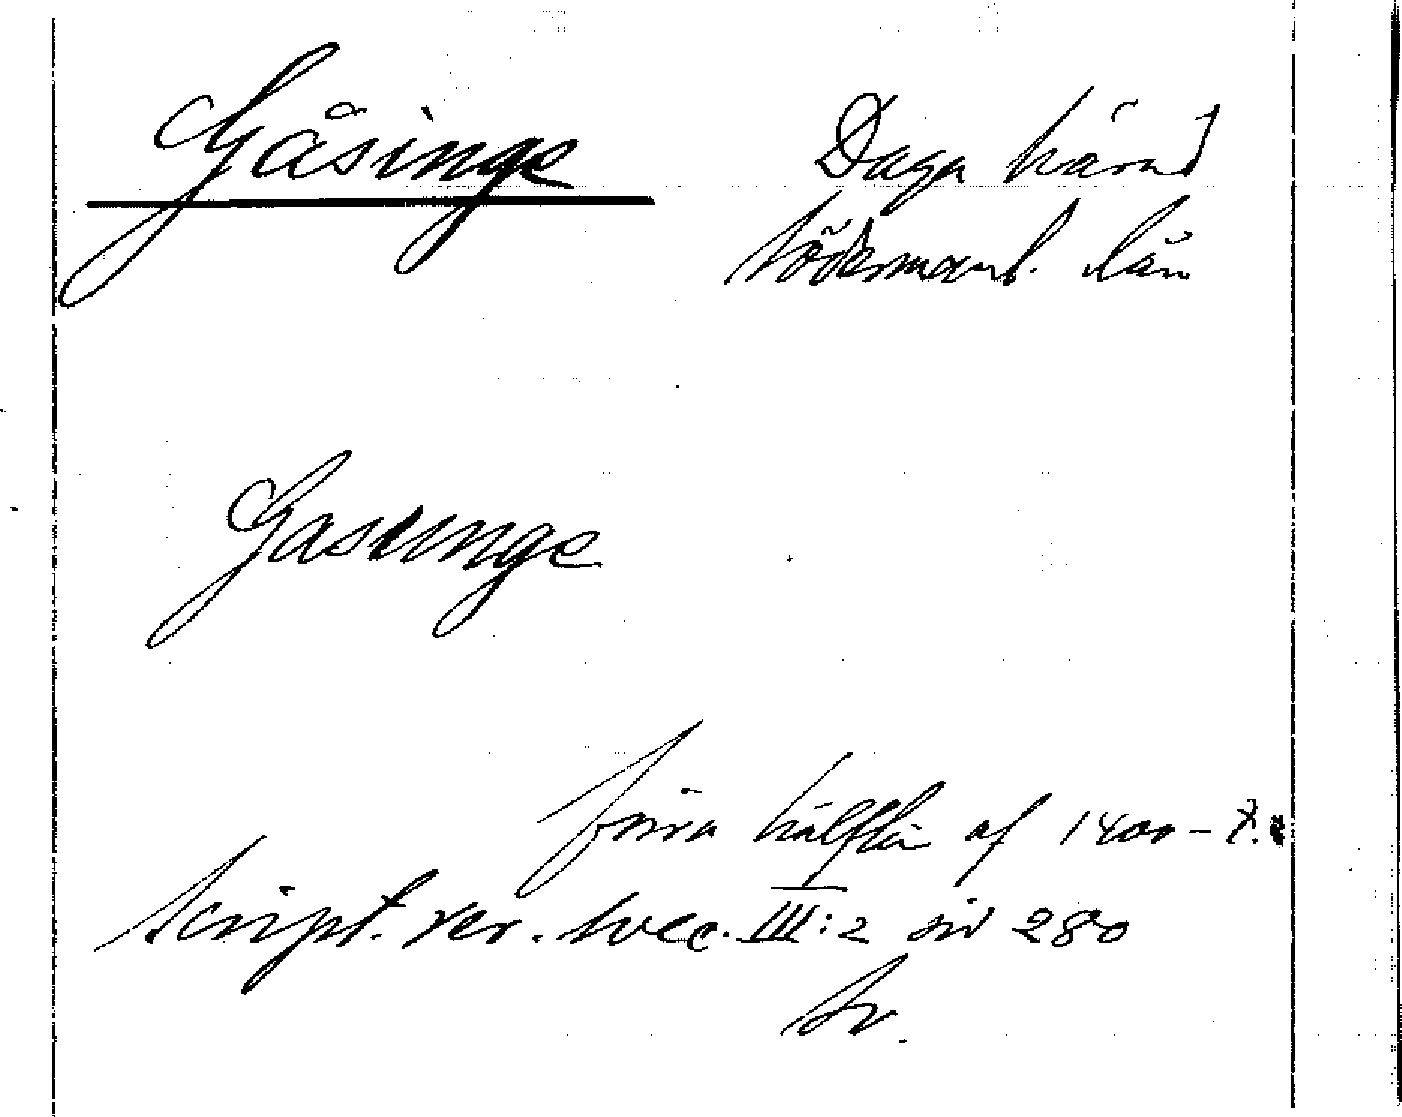 Gåsinge
Daga härad
Södermanl. län
Gasinge
förra hälften af 1400-t.
Script. rer. svec. III:2 sid 280
Sv.